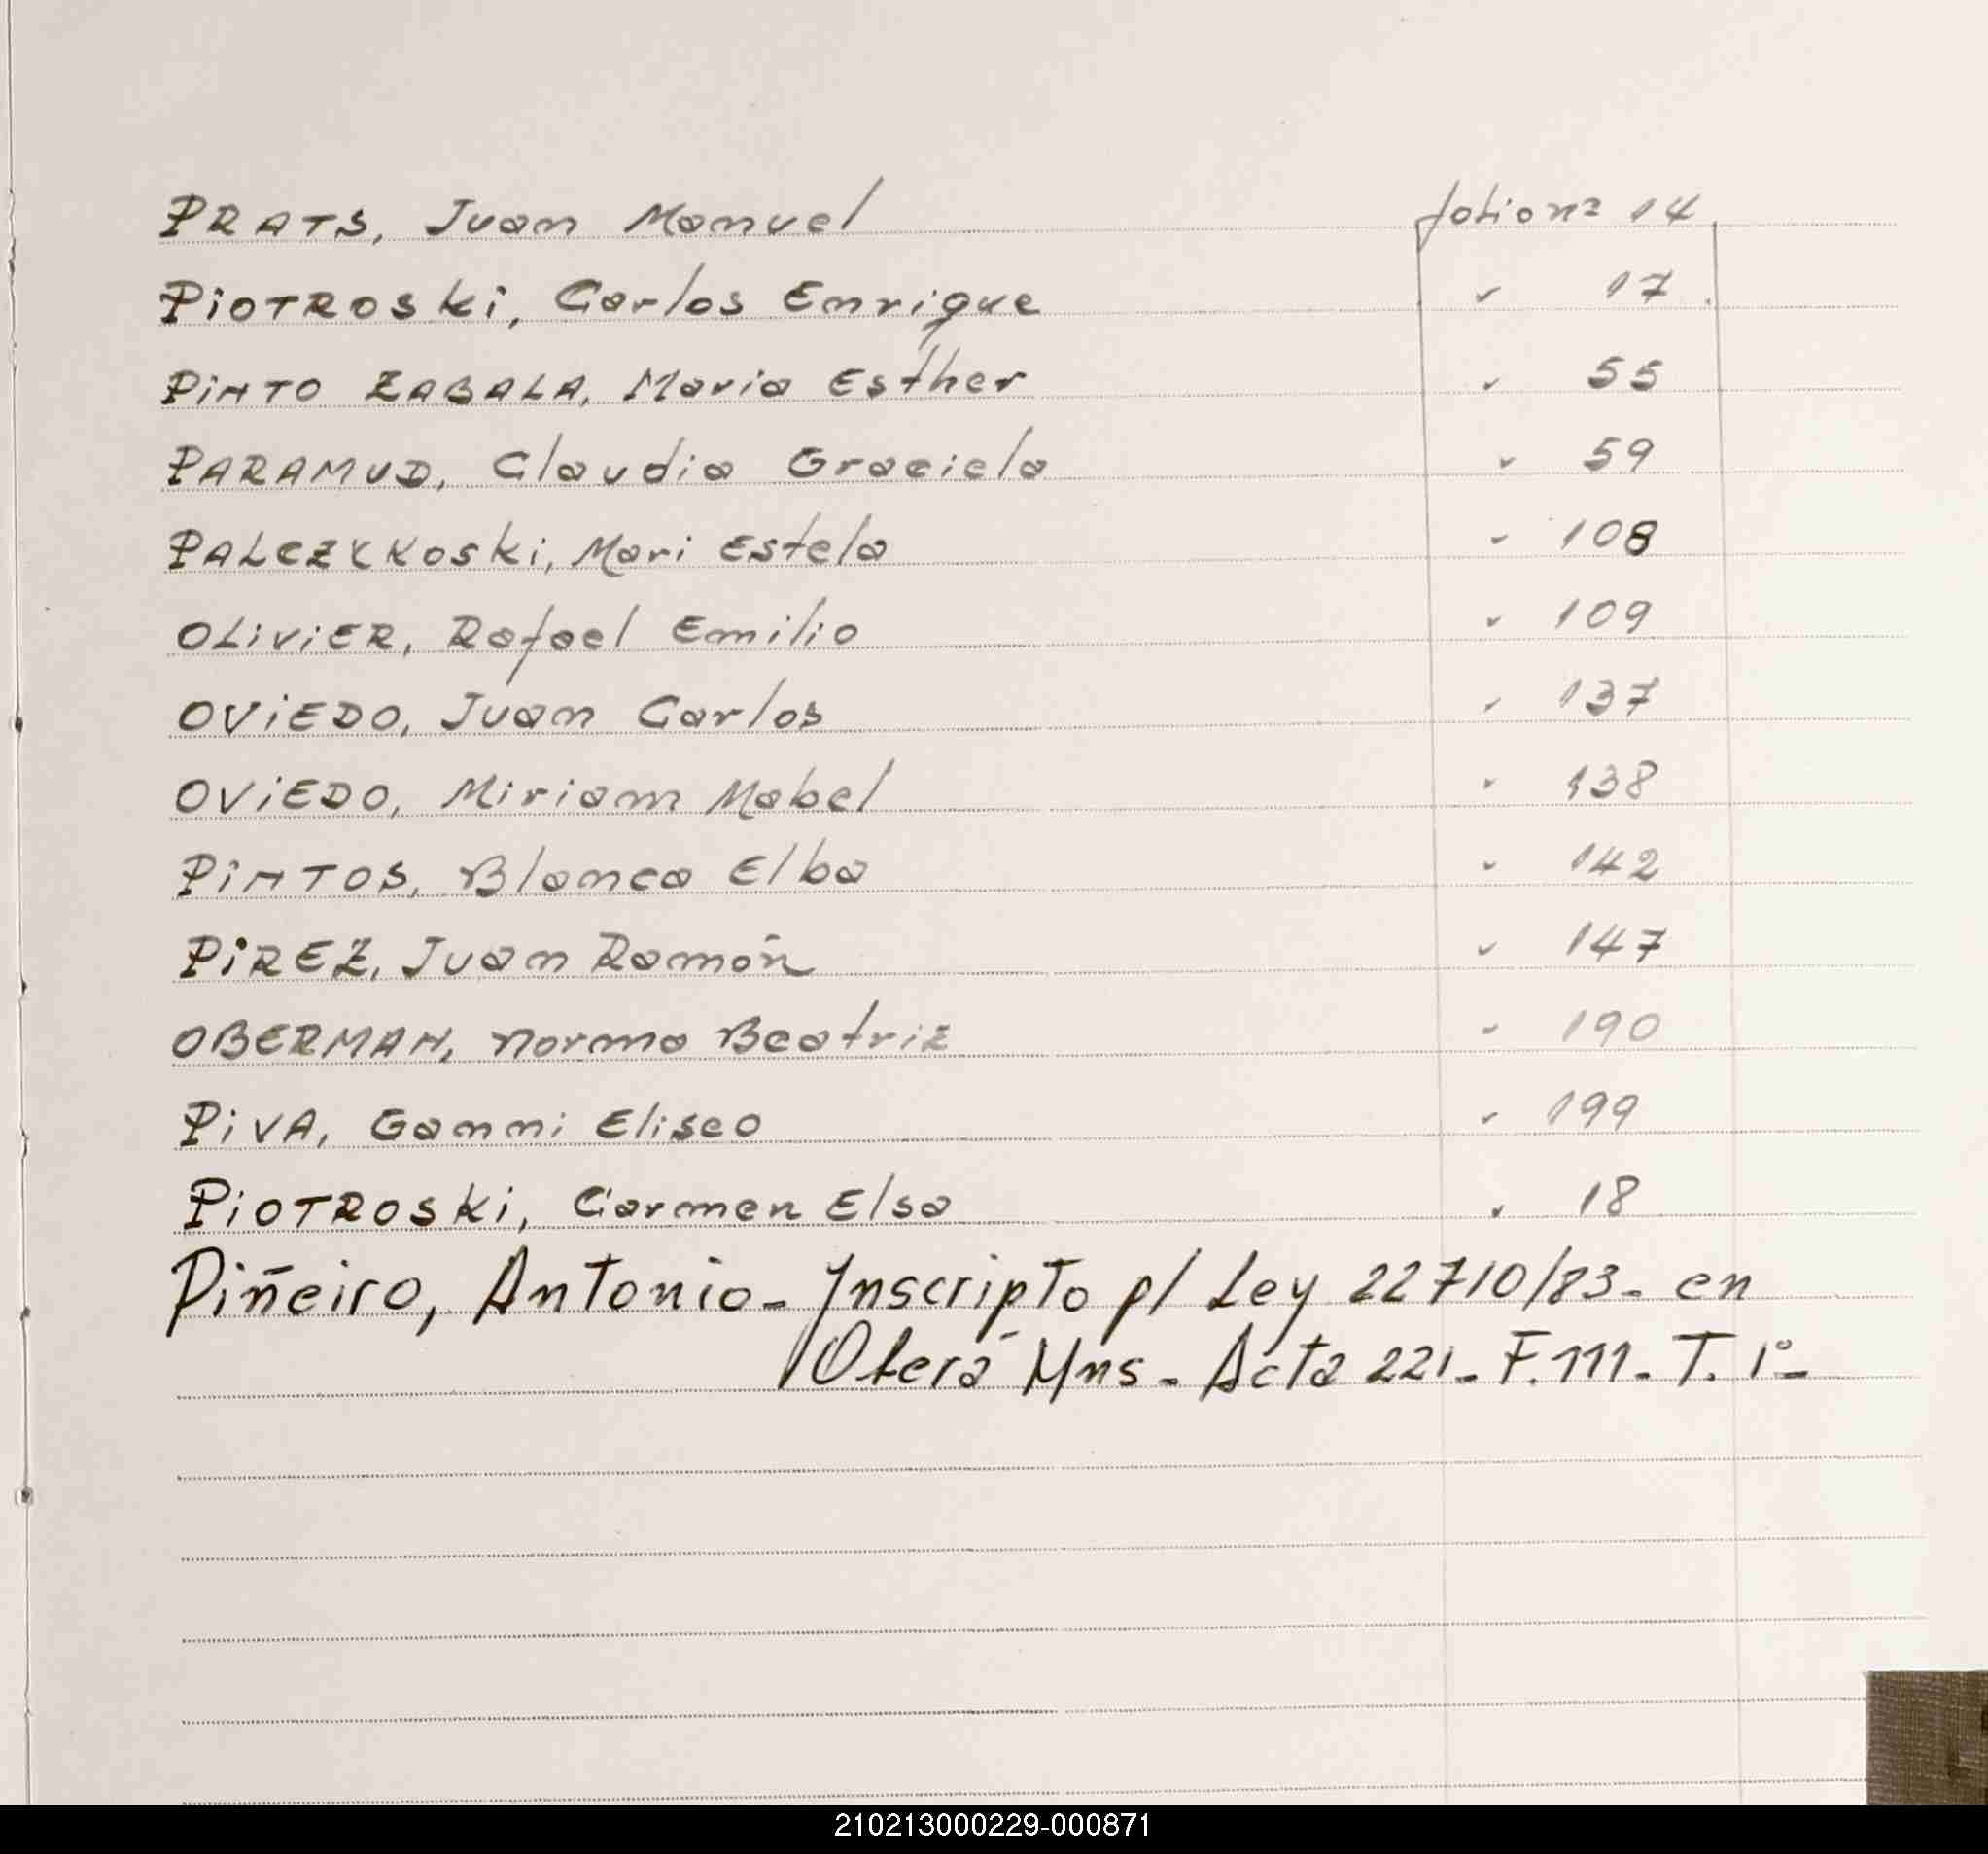 PRATS, Juan Manuel folio nº 14
PiOTROSKi, Carlos Enrique " 17
PiNTO ZABALA, Maria Esther " 55
PARAMUD, Claudia Graciela " 59
PALCZYKOSKi, Mari Estela " 108
OLiViER, Rafael Emilio " 109
OViEDO, Juan Carlos " 137
OViEDO, Miriam Mabel " 138
PiNTOS, Blanca Elba " 142
PiREZ, Juan Ramón " 147
OBERMAN, Norma Beatriz " 190
PiVA, Ganni Eliseo " 199
PiOTROSKi, Carmen Elsa " 18
Piñeiro, Antonio - Inscripto p/ Ley 22710/83 - en
Oberá Mns - Acta 221 - F. 111 - T. 1º -
210213000229-000871